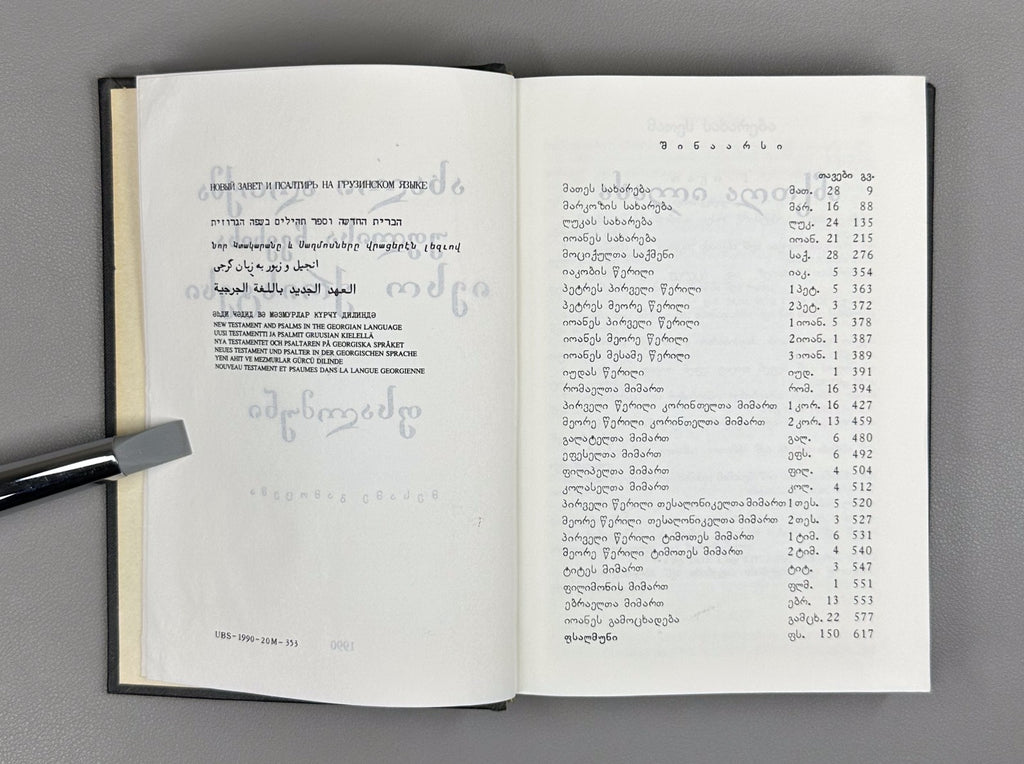 НОВЫЙ ЗАВЕТ И ПСАЛТИРЬ НА ГРУЗИНСКОМ ЯЗЫКЕ
הברית החדשה וספר תהילים בשפה הגרוזית
Նոր Կտակարանը և Սաղմոսները վրացերէն լեզւով
انجیل و زبور به زبان گرجی
العهد الجديد باللغة الجرجية
ӘҺДИ ҸӘДИД ВӘ МӘЗМУРЛАР ҜҮРҸҮ ДИЛИНДӘ
NEW TESTAMENT AND PSALMS IN THE GEORGIAN LANGUAGE
UUSI TESTAMENTTI JA PSALMIT GRUUSIAN KIELELLÄ
NYA TESTAMENTET OCH PSALTAREN PÅ GEORGISKA SPRÅKET
NEUES TESTAMENT UND PSALTER IN DER GEORGISCHEN SPRACHE
YENI AHIT VE MEZMURLAR GÜRCÜ DILINDE
NOUVEAU TESTAMENT ET PSAUMES DANS LA LANGUE GEORGIENNE
UBS-1990-20M-353
შინაარსი
თავები გვ.
მათეს სახარება მათ. 28 9
მარკოზის სახარება მარ. 16 88
ლუკას სახარება ლუკ. 24 135
იოანეს სახარება იოან. 21 215
მოციქულთა საქმენი საქ. 28 276
იაკობის წერილი იაკ. 5 354
პეტრეს პირველი წერილი 1 პეტ. 5 363
პეტრეს მეორე წერილი 2 პეტ. 3 372
იოანეს პირველი წერილი 1 იოან. 5 378
იოანეს მეორე წერილი 2 იოან. 1 387
იოანეს მესამე წერილი 3 იოან. 1 389
იუდას წერილი იუდ. 1 391
რომაელთა მიმართ რომ. 16 394
პირველი წერილი კორინთელთა მიმართ 1 კორ. 16 427
მეორე წერილი კორინთელთა მიმართ 2 კორ. 13 459
გალატელთა მიმართ გალ. 6 480
ეფესელთა მიმართ ეფს. 6 492
ფილიპელთა მიმართ ფილ. 4 504
კოლასელთა მიმართ კოლ. 4 512
პირველი წერილი თესალონიკელთა მიმართ 1 თეს. 5 520
მეორე წერილი თესალონიკელთა მიმართ 2 თეს. 3 527
პირველი წერილი ტიმოთეს მიმართ 1 ტიმ. 6 531
მეორე წერილი ტიმოთეს მიმართ 2 ტიმ. 4 540
ტიტეს მიმართ ტიტ. 3 547
ფილიმონის მიმართ ფლმ. 1 551
ებრაელთა მიმართ ებრ. 13 553
იოანეს გამოცხადება გამცხ. 22 577
ფსალმუნი ფს. 150 617